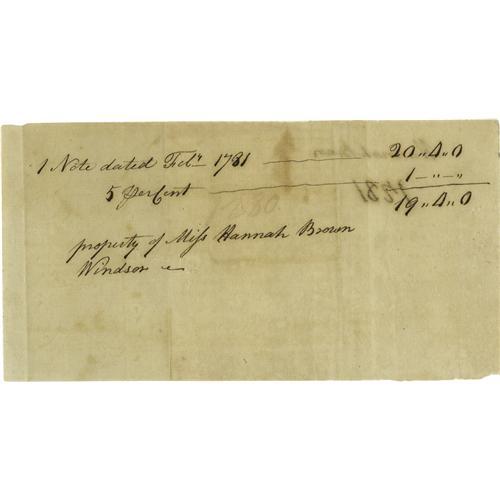 1 Note dated Feby 1781 20,,4,,0
5 per Cent 1-,,-,,
19,,4,,0
property of Miss Hannah Brown
Windsor